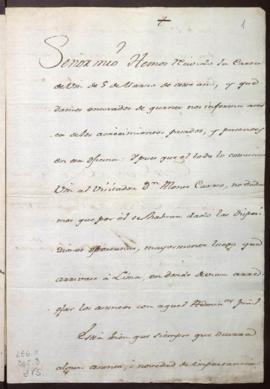 1
Señor mio Hemos recivido la Carta
de Vm. de 5 de Marzo de este año, y que
damos enterados de quanto nos informa acer
ca de los acaecimientos pasados, y presentes
en esa oficina. Y pues que al todo lo comunica
Vm al Visitador Dn. Alonso Carrio, no duda
mos que por él se habran dado las dispo
siciones oportunas, mayormente luego que
arrivase à Lima, en donde devian arre
glar los asuntos con aquel Admin.or Gral.
Està bien que siempre que ocurra
algun asunto, ò novedad de importancia